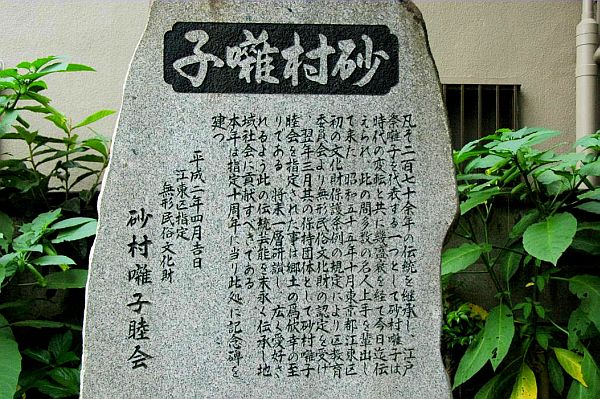 子囃村砂
凡そ二百七十余年の伝統を継承し江戸
祭囃子を代表する一つとして砂村囃子は
時代の変転と共に幾盛衰を経て今日迄伝
えられ此の間多数の名人上手を輩出し
て来た 昭和五十五年十月東京都江東区
初の文化財保護条例の規定により区教育
委員会より無形民俗文化財の認定を受け
翌年三月其の保持団体として砂村囃子
睦会を指定された事は郷土の為欣幸の至
りである 将来一層研讃し 広く愛好さ
れるよう此の伝統芸能を末永く伝承し地
域社会に貢献すべきである
本年は指定十周年に当り此処に記念碑を
建つ
平成二年四月吉日
江東区指定
無形民俗文化財
砂村囃子睦会